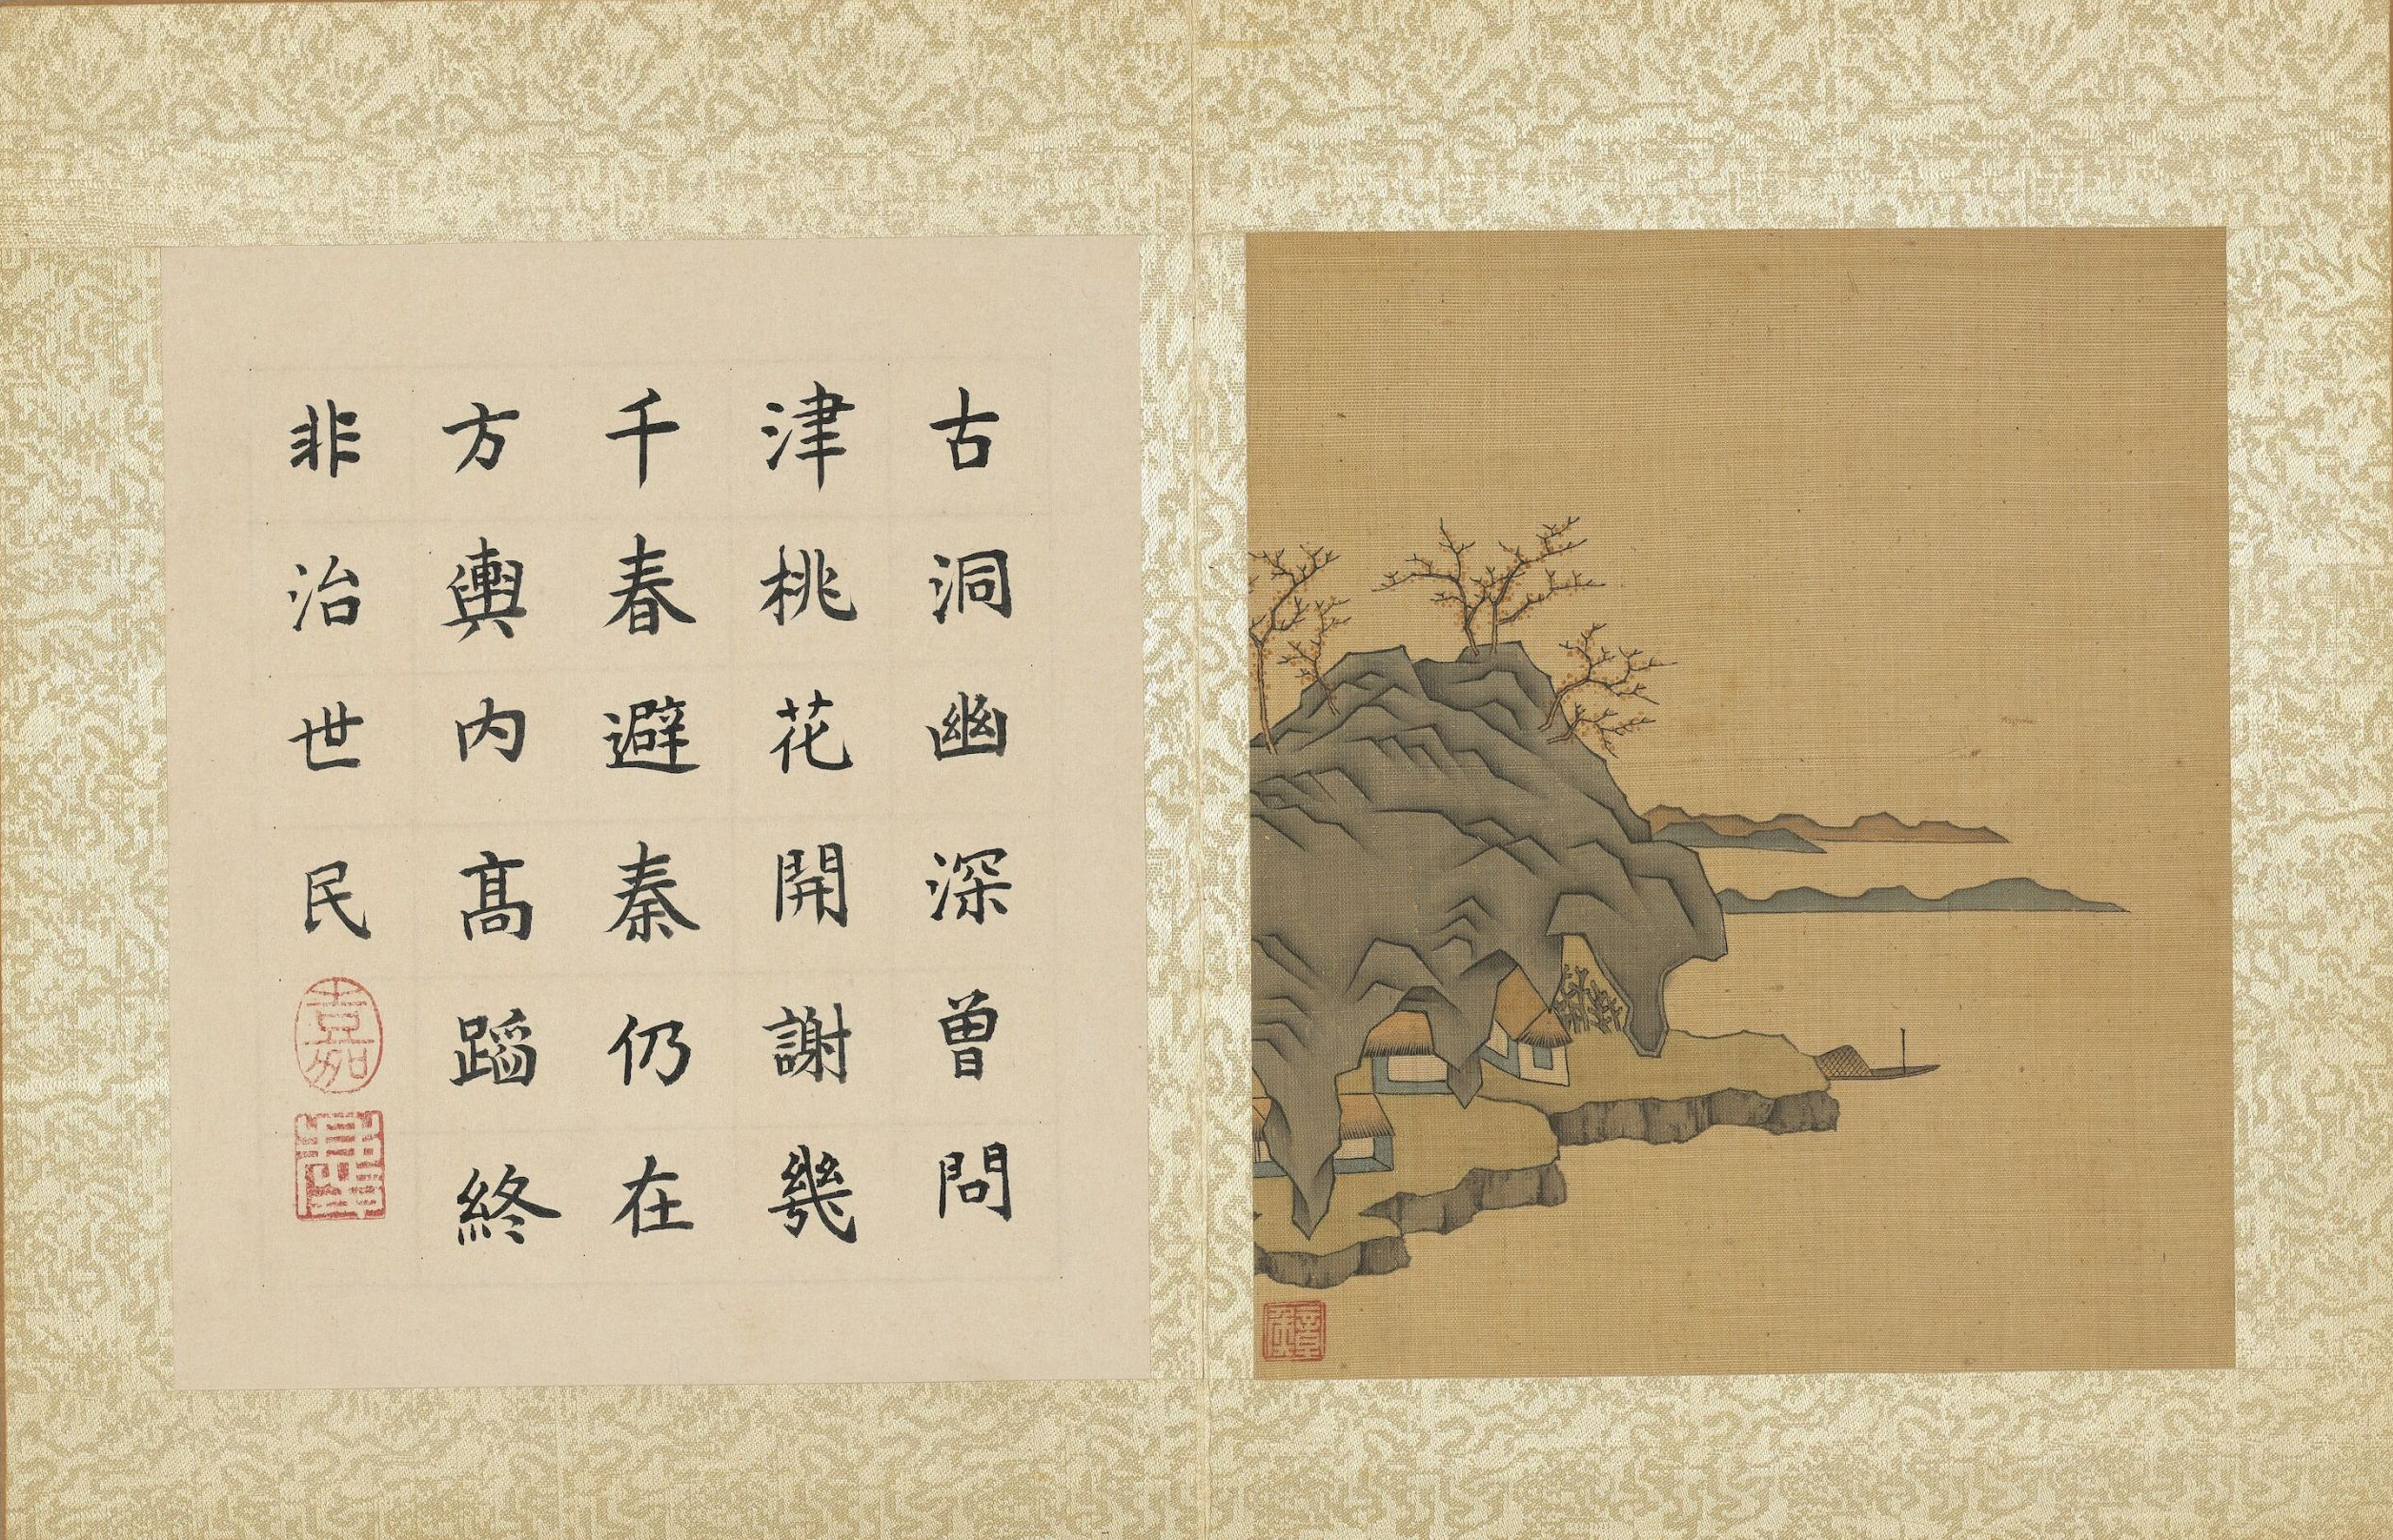 古洞幽深曾問
津桃花開謝㡬
千春避秦仍在
方輿内髙蹈終
非治世民
嘉